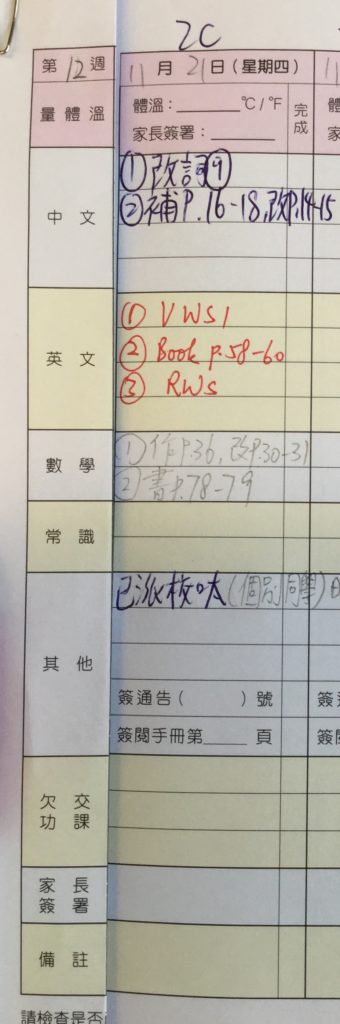 2C
第12週 11月21日(星期四) 11
量體溫 體溫：______°C/°F 完成
家長簽署：______
中文 ①改詞⑨
②補P.16-18,改P.14-15
英文 ① VWS1
② Book p.58-60
③ RWS
數學 ①作P.36,改P.30-31
②書P.78-79
常識
其他 已派校呔(個別同學)
簽通告( )號
簽閱手冊第____頁
欠交功課
家長簽署
備註
請檢查是否